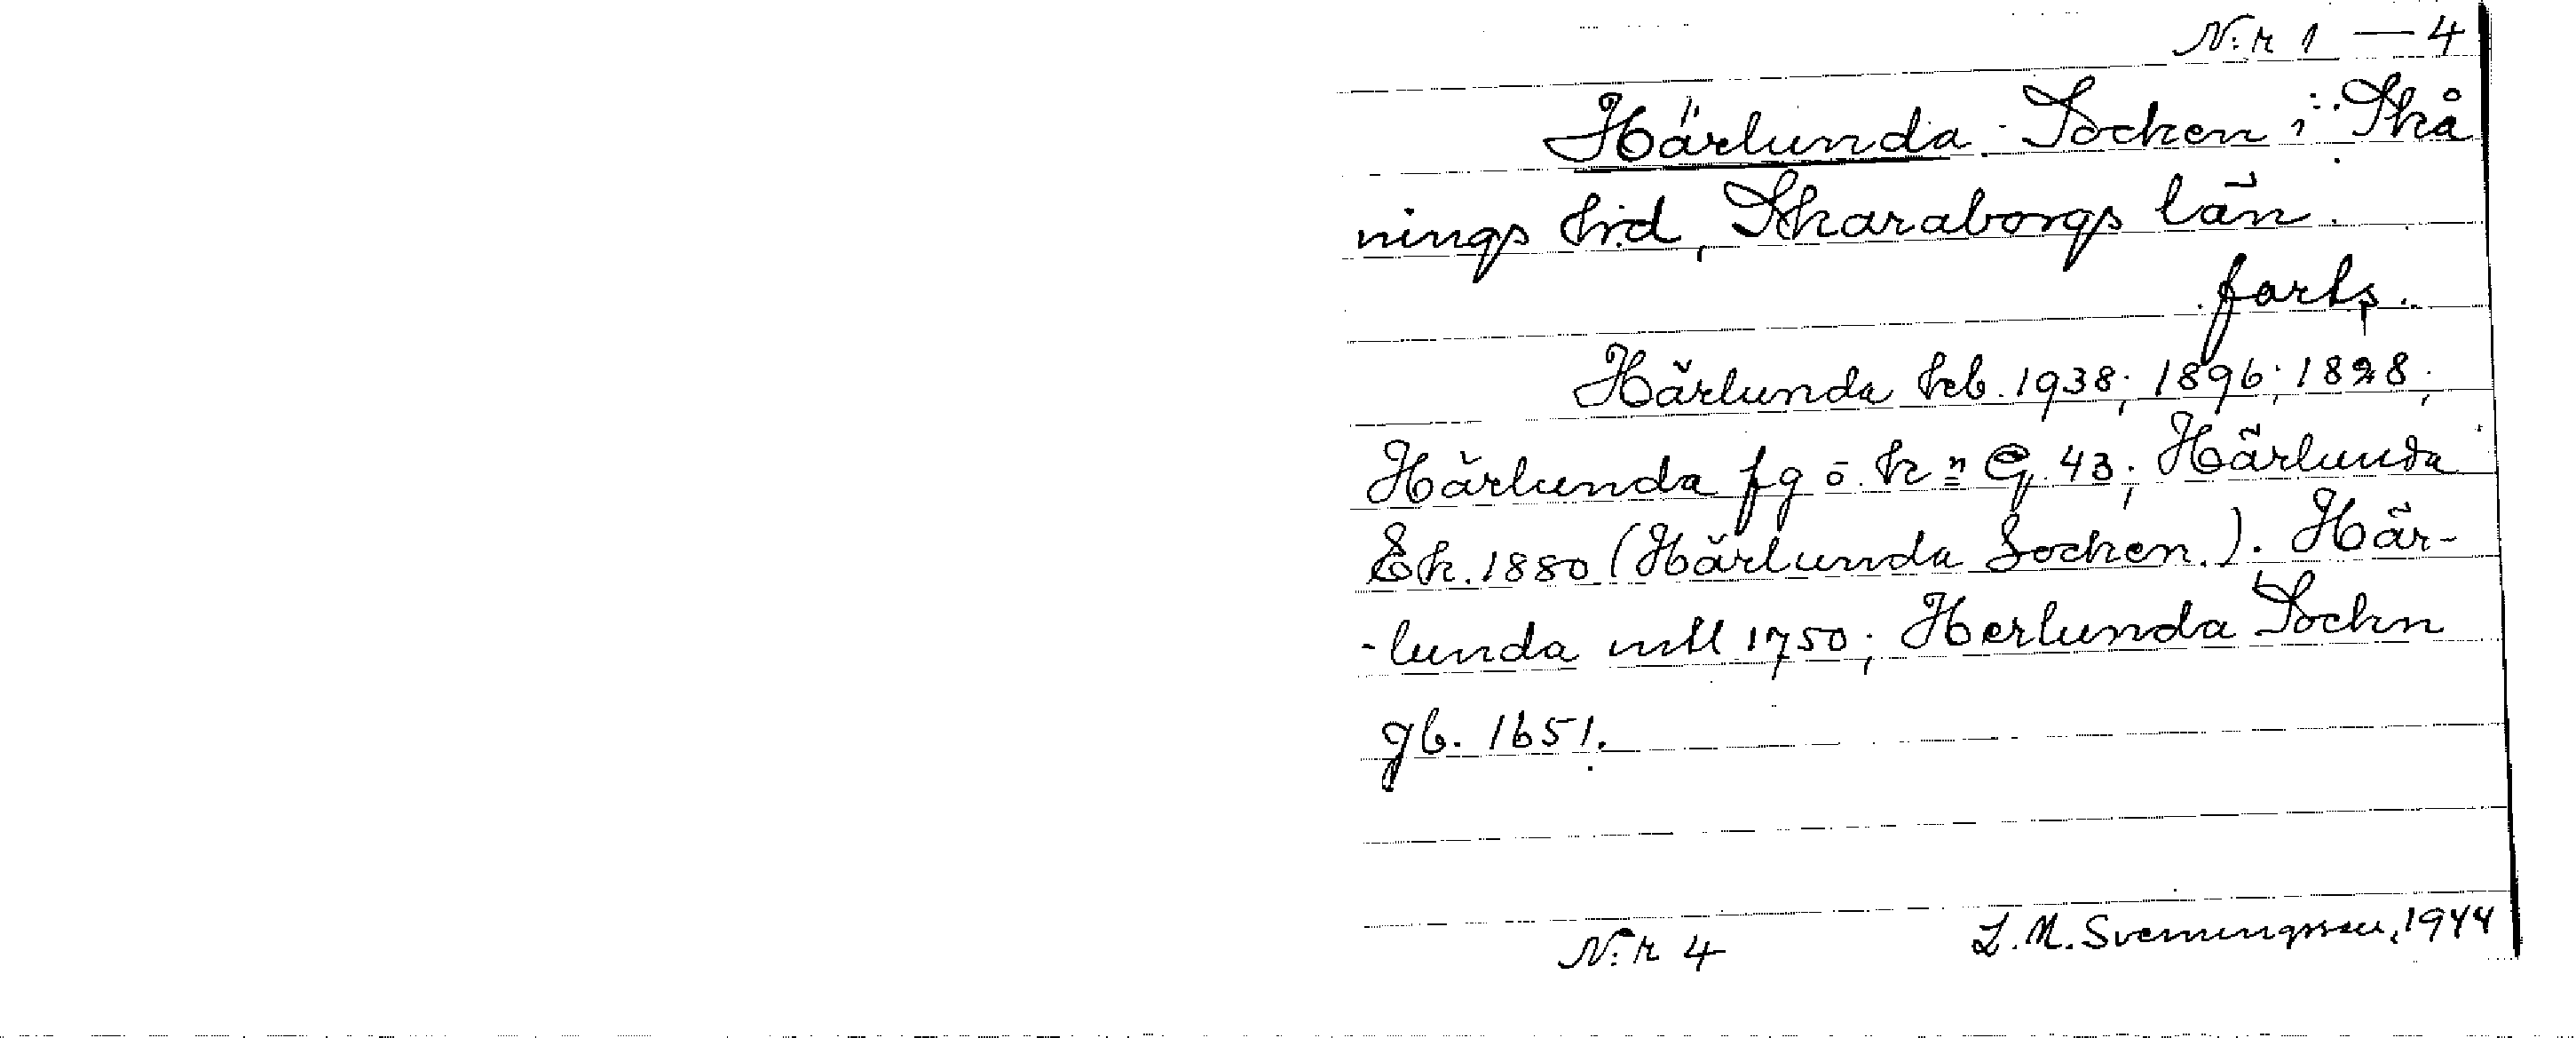 N:r 1 — 4
Härlunda Socken i Skå
nings hd, Skaraborgs län.
forts.
Härlunda kb. 1938; 1896; 1828;
Härlunda fg o. k:n G. 43; Härlunda
Ek. 1880 (Härlunda Socken.). Här-
-lunda mtl 1750; Herlunda Sockn
gb. 1651.
N:r 4 L. M. Svenungsson, 1944